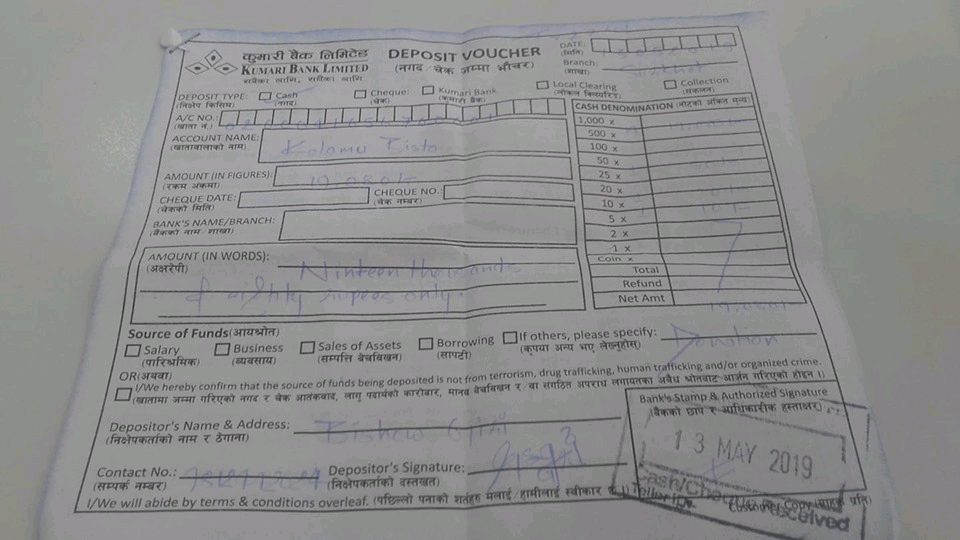 कुमारी बैंक लिमिटेड
KUMARI BANK LIMITED
DEPOSIT VOUCHER
(नगद/चेक जम्मा भौचर)
DATE:
(मिति)
Branch:
(शाखा)
DEPOSIT TYPE: Cash Cheque: Kumari Bank Local Clearing Collection
(निक्षेप किसिम) (नगद) (चेक) (कुमारी बैंक) (लोकल क्लियरिङ) (संकलन)
A/C NO.:
(खाता नं.)
ACCOUNT NAME:
(खातावालाको नाम)
AMOUNT (IN FIGURES): 19,080/-
(रकम अंकमा)
CHEQUE DATE: CHEQUE NO.:
(चेकको मिति) (चेक नम्बर)
BANK'S NAME/BRANCH:
(बैंकको नाम/शाखा)
CASH DENOMINATION (नोटको अंकित मूल्य)
1,000 x
500 x
100 x
50 x
25 x
20 x
10 x
5 x
2 x
1 x
Coin x
Total
Refund
Net Amt 19,080/-
AMOUNT (IN WORDS): Ninteen thousands
(अक्षरेपी)
& eighty rupees only.
Source of Funds(आयश्रोत)
Salary Business Sales of Assets Borrowing If others, please specify: Donation
(पारिश्रमिक) (व्यवसाय) (सम्पत्ति बेचबिखन) (सापटी) (कृपया अन्य भए लेख्नुहोस्)
OR(अथवा)
I/We hereby confirm that the source of funds being deposited is not from terrorism, drug trafficking, human trafficking and/or organized crime.
(खातामा जम्मा गरिएको नगद र चेक आतंकवाद, लागु पदार्थको कारोबार, मानव बेचबिखन र/वा संगठित अपराध लगायतका अवैध श्रोतबाट आर्जन गरिएको होइन।)
Depositor's Name & Address:
(निक्षेपकर्ताको नाम र ठेगाना)
Contact No.: Depositor's Signature:
(सम्पर्क नम्बर) (निक्षेपकर्ताको दस्तखत)
Bank's Stamp & Authorized Signature
(बैंकको छाप र आधिकारीक हस्ताक्षर)
13 MAY 2019
Received
I/We will abide by terms & conditions overleaf.